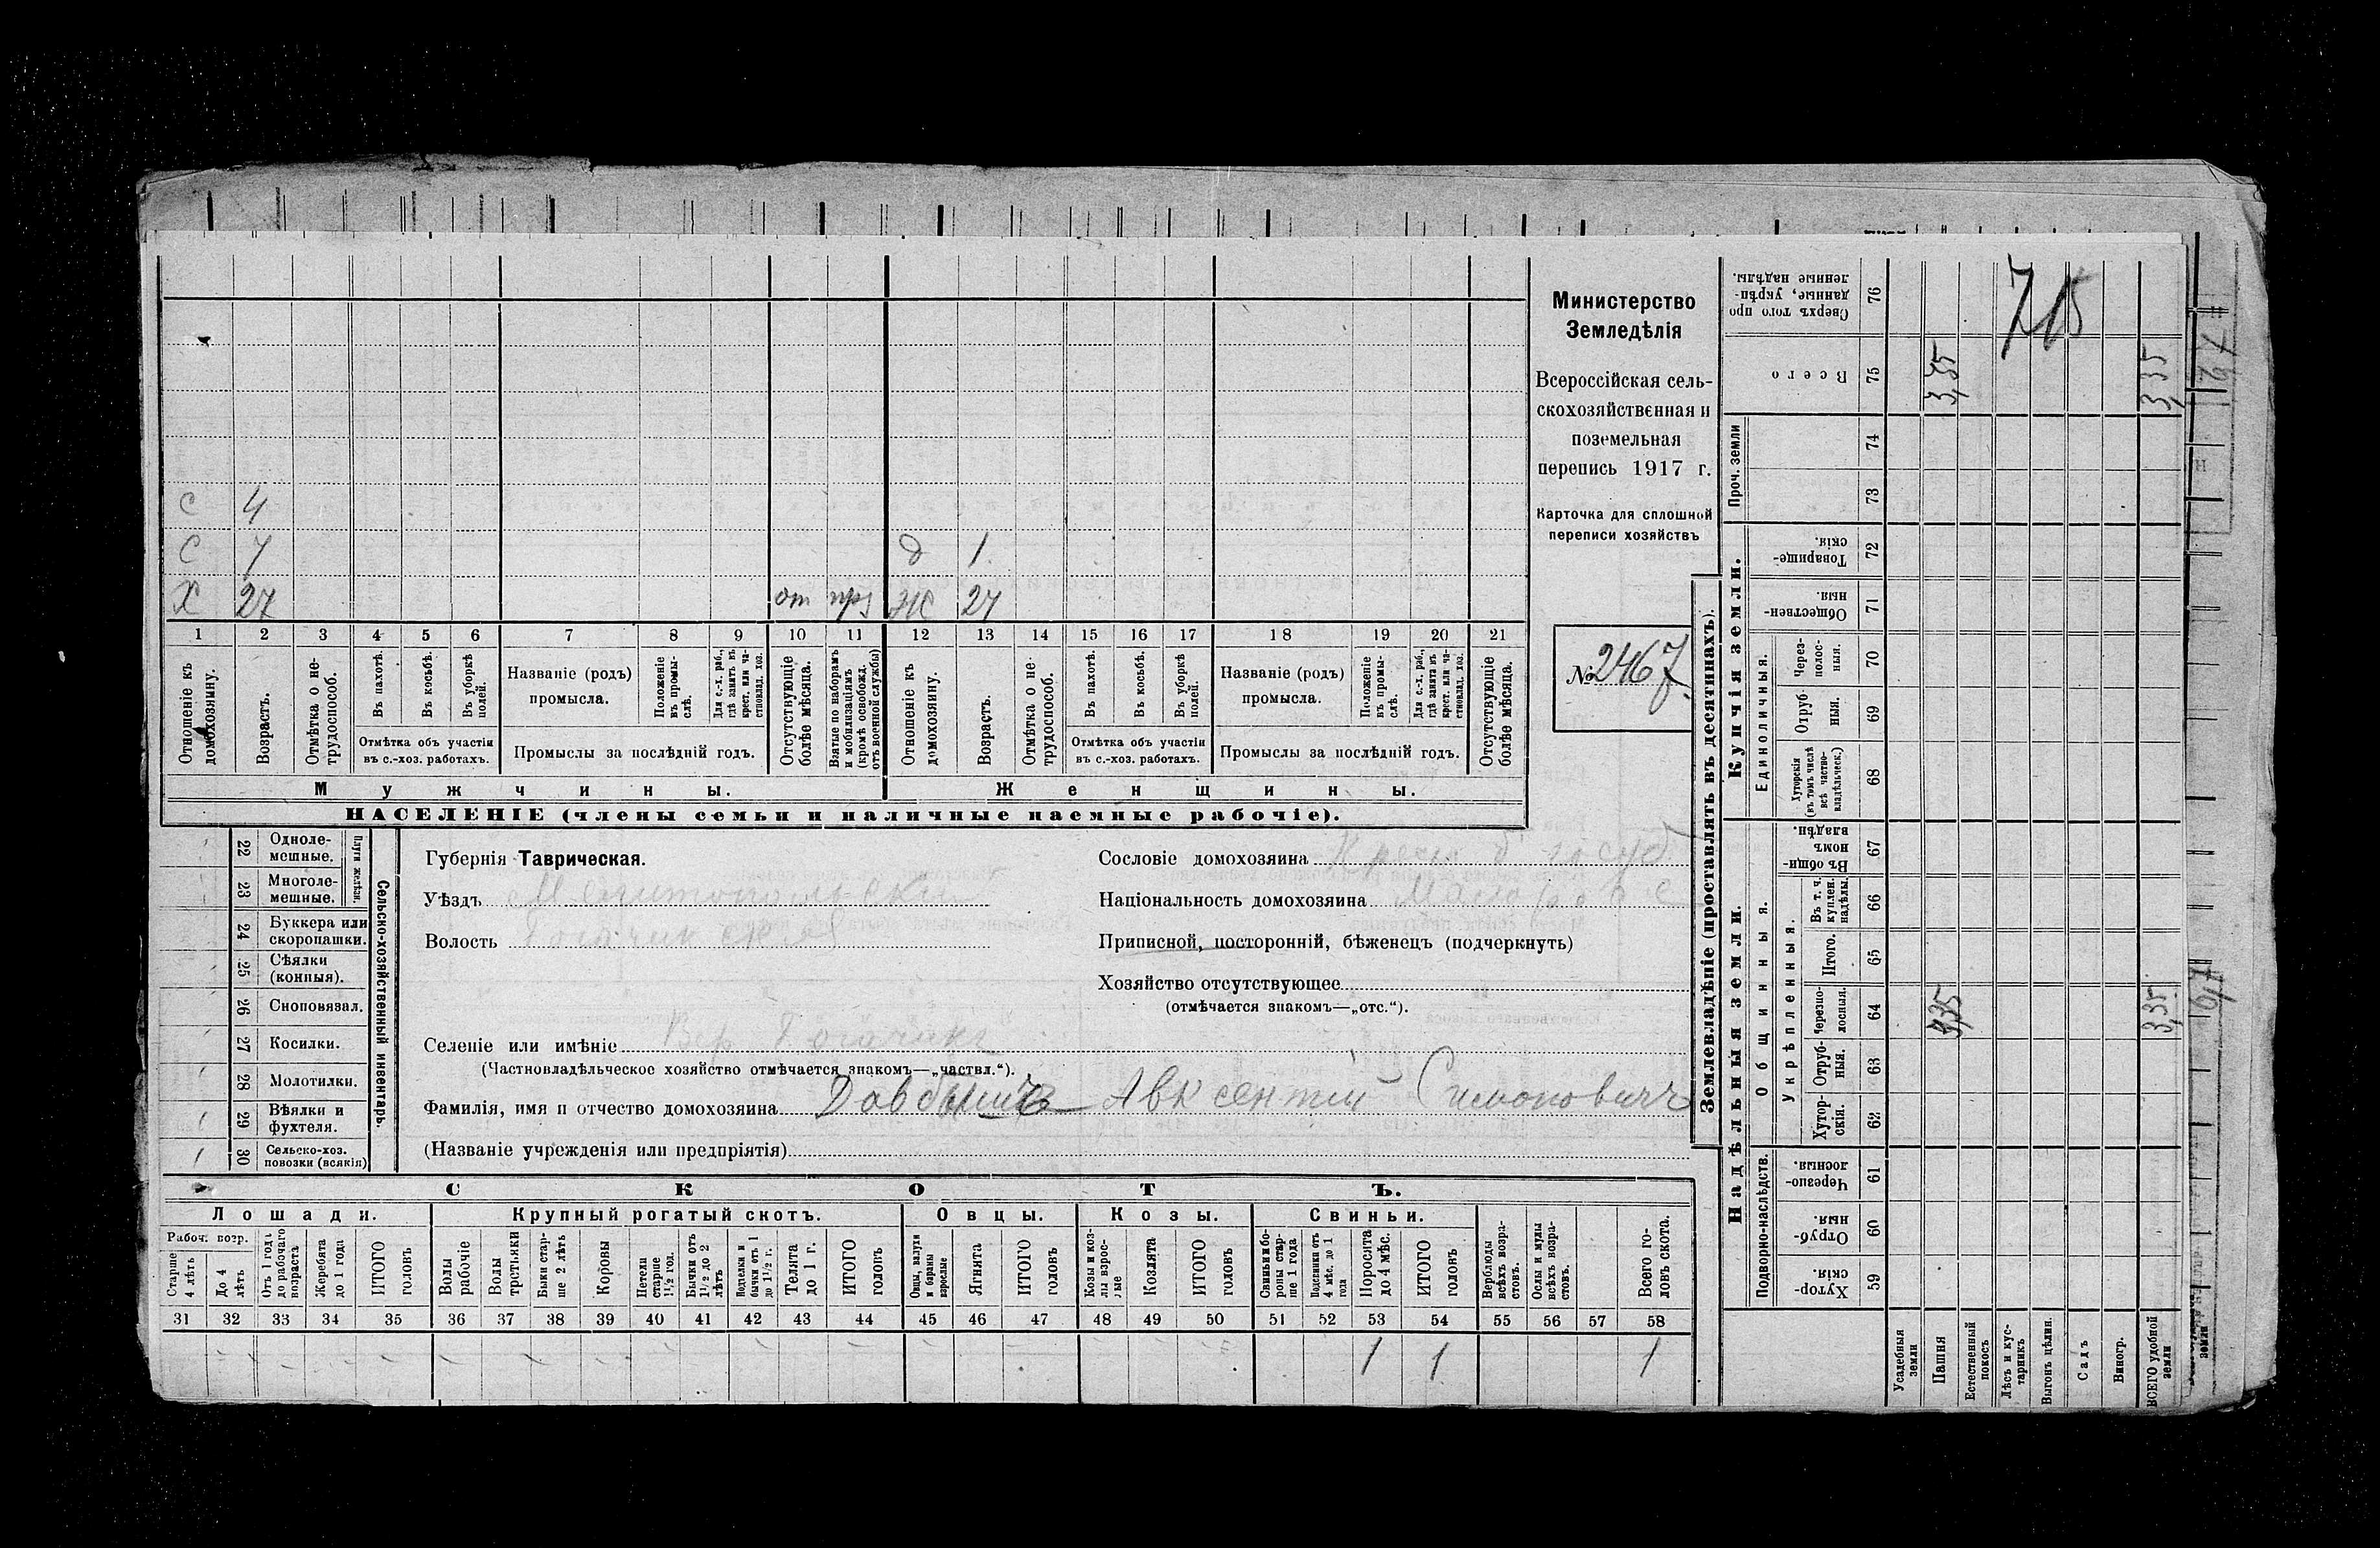 С 4
С 7 д 1
Х 27 от ж 27
1 2 3 4 5 6 7 8 9 10 11 12 13 14 15 16 17 18 19 20 21
Отношеніе къ домохозяину.
Возрастъ.
Отмѣтка о не-трудоспособ.
Въ пахотѣ.
Въ косьбѣ.
Въ уборкѣ полей.
Отмѣтка объ участіи
въ с.-хоз. работахъ.
Названіе (родъ)
промысла.
Положеніе въ промы-слѣ.
Для с.-х. раб., гдѣ занятъ въ крест. или ча-стновлад. хоз.
Промыслы за послѣдній годъ.
Отсутствующіе болѣе мѣсяца.
Взятые по наборамъ и мобилизаціямъ (кромѣ освобожд. отъ военной службы)
Отношеніе къ домохозяину.
Возрастъ.
Отмѣтка о не-трудоспособ.
Въ пахотѣ.
Въ косьбѣ.
Въ уборкѣ полей.
Отмѣтка объ участіи
въ с.-хоз. работахъ.
Названіе (родъ)
промысла.
Положеніе въ промы-слѣ.
Для с.-х. раб., гдѣ занята въ крест. или ча-стновлад. хоз.
Промыслы за послѣдній годъ.
Отсутствующіе болѣе мѣсяца.
Мужчины. Женщины.
НАСЕЛЕНІЕ (члены семьи и наличные наемные рабочіе).
Министерство
Земледѣлія
Всероссійская сель-
скохозяйственная и
поземельная
перепись 1917 г.
Карточка для сплошной
переписи хозяйствъ
№ 2467
Сельско-хозяйственный инвентарь.
Плуги желѣзн.
22 Одноле-мешные.
23 Многоле-мешные.
24 Буккера или скоропашки.
25 Сѣялки (конныя).
26 Сноповязал.
27 Косилки.
28 Молотилки.
29 Вѣялки и фухтеля.
1 30 Сельско-хоз. повозки (всякія)
Губернія Таврическая.
Уѣздъ Мелитопольскій
Волость
Селеніе или имѣніе Вер. Рогачикъ
(Частновладѣльческое хозяйство отмѣчается знакомъ—„частвл.“).
Фамилія, имя и отчество домохозяина Авксентій Симонович
(Названіе учрежденія или предпріятія)
Сословіе домохозяина Крест. б. госуд
Національность домохозяина Малорос
Приписной, посторонній, бѣженецъ (подчеркнуть)
Хозяйство отсутствующее
(отмѣчается знакомъ—„отс.“).
СКОТЪ.
Лошади. Крупный рогатый скотъ. Овцы. Козы. Свиньи.
Рабоч. возр.
Старше 4 лѣтъ
До 4 лѣтъ
Отъ 1 года до рабочаго возраста
Жеребята до 1 года
ИТОГО головъ
Волы рабочіе
Волы третьяки
Быки стар-ше 2 лѣтъ
Коровы
Нетели старше 1½ год.
Бычки отъ 1½ до 2 лѣтъ
Подтелки и бычки отъ 1 до 1½ г.
Телята до 1 г.
ИТОГО головъ
Овцы, валухи и бараны взрослые
Ягнята
ИТОГО головъ
Козы и коз-лы взрос-лые
Козлята
ИТОГО головъ
Свиньи и бо-ровы стар-ше 1 года
Подсвинки отъ 4 мѣс. до 1 года
Поросята до 4 мѣс.
ИТОГО головъ
Верблюды всѣхъ возра-стовъ.
Ослы и мулы всѣхъ возра-стовъ.
Всего го-ловъ скота.
31 32 33 34 35 36 37 38 39 40 41 42 43 44 45 46 47 48 49 50 51 52 53 54 55 56 57 58
1 1 1
Землевладѣніе (проставлять въ десятинахъ).
Купчія земли.
Надѣльныя земли.
76 Сверхъ того про-данные, укрѣп-ленные надѣлы.
715
75 Всего 3,35 3,35
Проч. земли
74
73
72 Товарище-скія.
71 Обществен-ныя.
Единоличныя.
70 Через-полос-ныя.
69 Отруб-ныя.
68 Хуторскія (въ томъ числѣ всѣ частно-владѣльческ.)
67 Въ общин-номъ владѣн.
Общинныя.
Укрѣпленныя.
66 Въ т. ч. куплен. надѣлы.
65 Итого.
64 Черезпо-лосныя. 3,35 3,35
63 Отруб-ныя.
62 Хутор-скія.
Подворно-наслѣдств.
61 Черезпо-лосныя.
60 Отруб-ныя
59 Хутор-скія.
Усадебныя земли
Пашня
Естественный покосъ
Лѣсъ и кус-тарникъ
Выгонъ цѣлин.
Садъ
Виногр.
ВСЕГО удобной земли